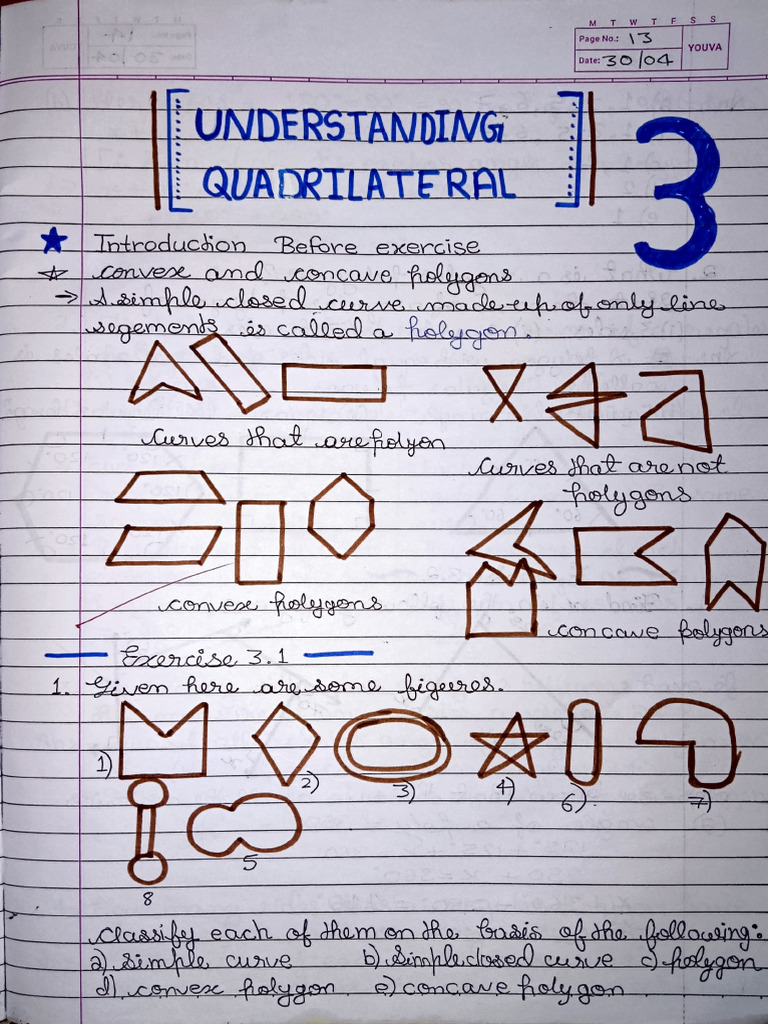 M T W T F S S
Page No.: 13
YOUVA
Date: 30/04
UNDERSTANDING
QUADRILATERAL
3
Introduction Before exercise
convex and concave polygons
→ A simple closed curve made up of only line
segements is called a polygon.
curves that are polyon
curves that are not
polygons
convex polygons
concave polygons
Exercise 3.1
1. Given here are some figures.
1)
2)
3)
4)
6)
7)
5
8
classify each of them on the basis of the following:
a) simple curve b) simple closed curve c) polygon
d) convex polygon e) concave polygon